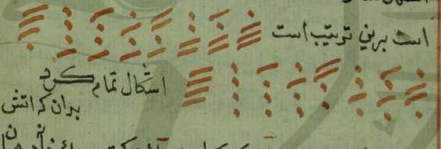 است برین ترتیب است
اشکال تمام کرد
بدان که اتش